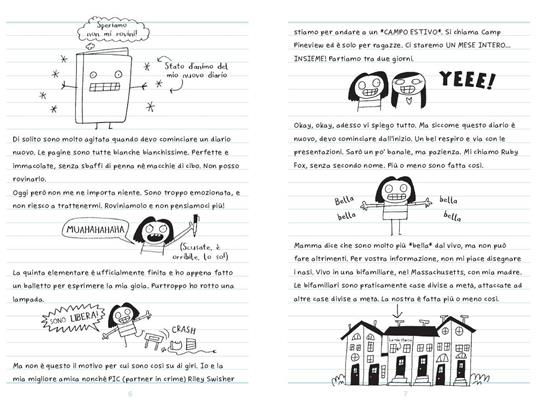 Speriamo
non mi rovini!
Stato d'animo del
mio nuovo diario
Di solito sono molto agitata quando devo cominciare un diario
nuovo. Le pagine sono tutte bianche bianchissime. Perfette e
immacolate, senza sbaffi di penna né macchie di cibo. Non posso
rovinarlo.
Oggi però non me ne importa niente. Sono troppo emozionata, e
non riesco a trattenermi. Roviniamolo e non pensiamoci più!
MUAHAHAHAHA
(Scusate, è
orribile, lo so!)
La quinta elementare è ufficialmente finita e ho appena fatto
un balletto per esprimere la mia gioia. Purtroppo ho rotto una
lampada.
SONO LIBERA!
CRASH
Ma non è questo il motivo per cui sono così su di giri. Io e la
mia migliore amica nonché PIC (partner in crime) Riley Swisher
6
stiamo per andare a un *CAMPO ESTIVO*. Si chiama Camp
Pineview ed è solo per ragazze. Ci staremo UN MESE INTERO...
INSIEME! Partiamo tra due giorni.
YEEE!
Okay, okay, adesso vi spiego tutto. Ma siccome questo diario è
nuovo, devo cominciare dall'inizio. Un bel respiro e via con le
presentazioni. Sarò un po' banale, ma pazienza. Mi chiamo Ruby
Fox, senza secondo nome. Più o meno sono fatta così.
Bella
bella
bella
bella
Mamma dice che sono molto più *bella* dal vivo, ma non può
fare altrimenti. Per vostra informazione, non mi piace disegnare
i nasi. Vivo in una bifamiliare, nel Massachusetts, con mia madre.
Le bifamiliari sono praticamente case divise a metà, attaccate ad
altre case divise a metà. La nostra è fatta più o meno così.
7